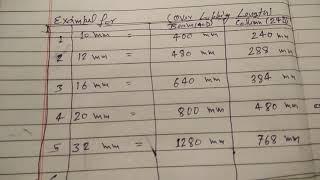 Exampal for
Cover Lapping Length
Beam (40D) Column (24D)
1 10 mm = 400 mm 240 mm
2 12 mm = 480 mm 288 mm
3 16 mm = 640 mm 384 mm
4 20 mm = 800 mm 480 mm
5 32 mm = 1280 mm 768 mm